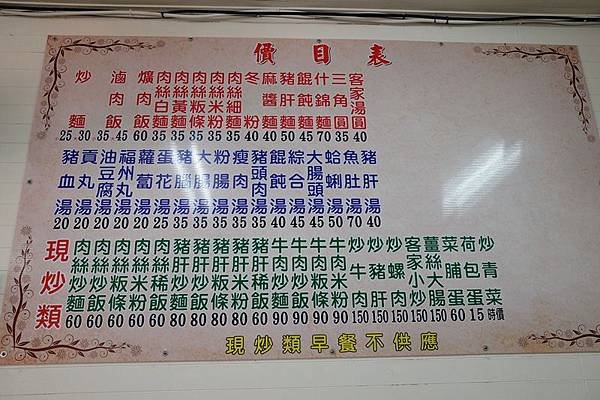 價目表
炒麵 25 30
滷肉飯 35 45
爌肉飯 60
肉絲白麵 35
肉絲黃麵 35
肉絲粄條 35
肉絲米粉 35
肉絲細麵 35
冬粉 40
麻醬麵 40
豬肝麵 50
餛飩麵 45
什錦麵 70
三角圓 35
客家湯圓 40
豬血湯 20
貢丸湯 20
油豆腐湯 20
福州丸湯 25
蘿蔔湯 20
蛋花湯 20
豬腦湯 35
大腸湯 35
粉腸湯 35
瘦肉湯 35
豬頭肉湯 35
餛飩湯 40
綜合湯 45
大腸頭湯 45
蛤蜊湯 50
魚肚湯 70
豬肝湯 40
現炒類
肉絲炒麵 60
肉絲炒飯 60
肉絲炒粄條 60
肉絲炒米粉 60
肉絲稀飯 60
豬肝炒麵 80
豬肝炒飯 80
豬肝炒粄條 80
豬肝炒米粉 80
豬肝稀飯 80
牛肉炒麵 90
牛肉炒飯 90
牛肉炒粄條 90
牛肉炒米粉 90
炒牛肉 150
炒豬肝 150
炒螺肉 150
客家小炒 150
薑絲大腸 150
菜脯蛋 60
荷包蛋 15
炒青菜 時價
現炒類早餐不供應